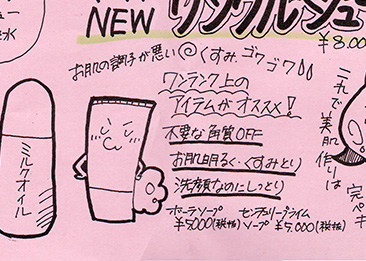 NEW リンクルシュ
¥8.00
お肌の調子が悪い くすみ、ゴワゴワ
ワンランク上の
アイテムがオススメ!
不要な角質OFF
お肌明るく・くすみとり
洗顔なのにしっとり
ホーラソープ
¥5,000(税抜)
センチュリープライム
ソープ ¥7,000(税抜)
ミルクオイル
これで美肌作りは
完ペキ
ュー
水